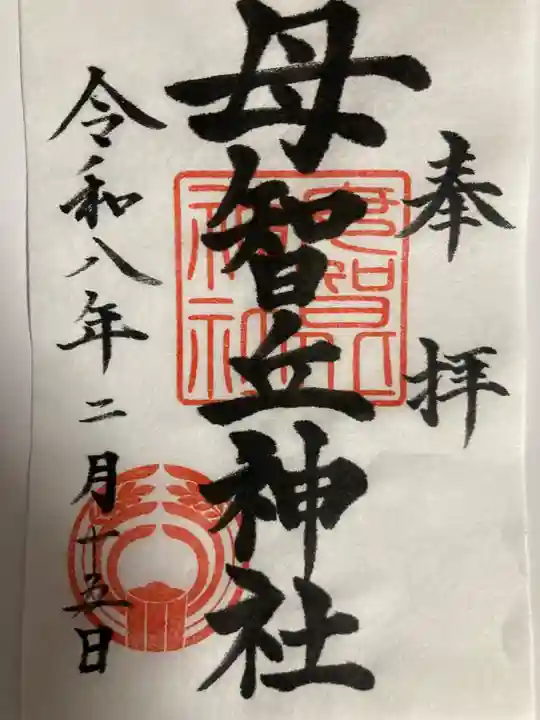 奉拝
母智丘神社
令和八年二月十五日